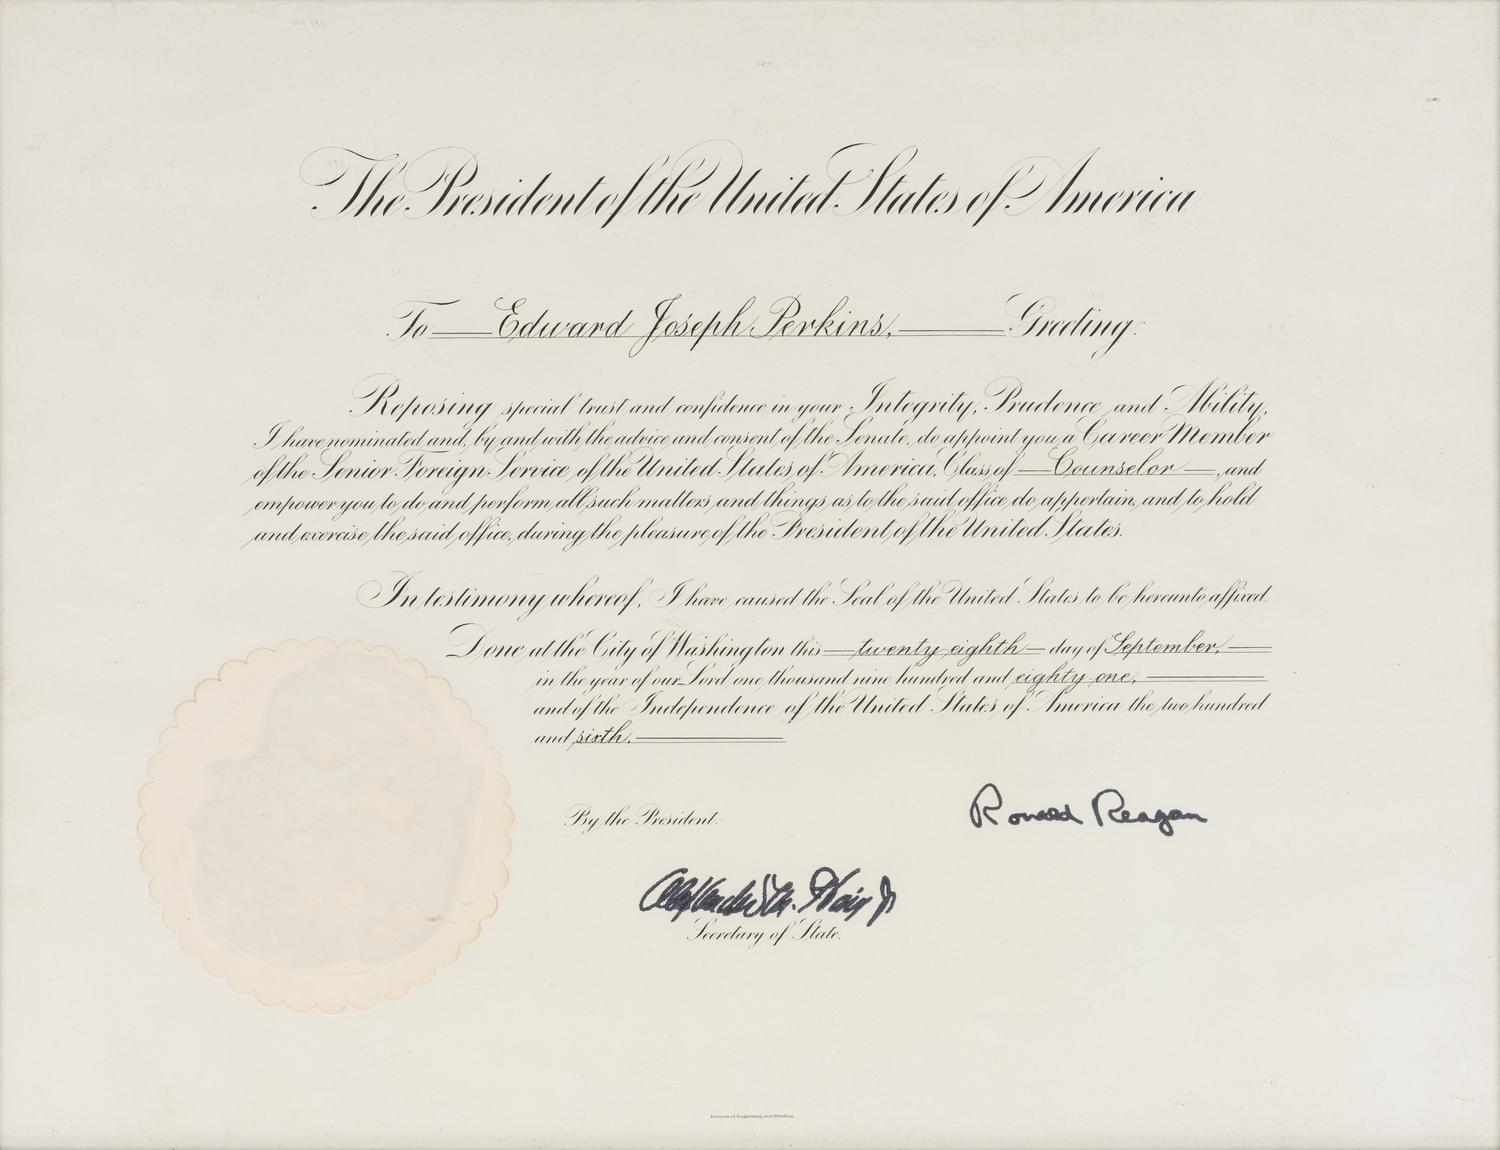 The President of the United States of America
To Edward Joseph Perkins, Greeting:
Reposing special trust and confidence in your Integrity, Prudence and Ability,
I have nominated and, by and with the advice and consent of the Senate, do appoint you a Career Member
of the Senior Foreign Service of the United States of America, Class of Counselor, and
empower you to do and perform all such matters and things as to the said office do appertain, and to hold
and exercise the said office, during the pleasure of the President of the United States.
In testimony whereof, I have caused the Seal of the United States to be hereunto affixed.
Done at the City of Washington this twenty eighth day of September,
in the year of our Lord one thousand nine hundred and eighty-one,
and of the Independence of the United States of America the two hundred
and sixth.
By the President:
Ronald Reagan
Alexander M. Haig Jr
Secretary of State.
Bureau of Engraving and Printing.